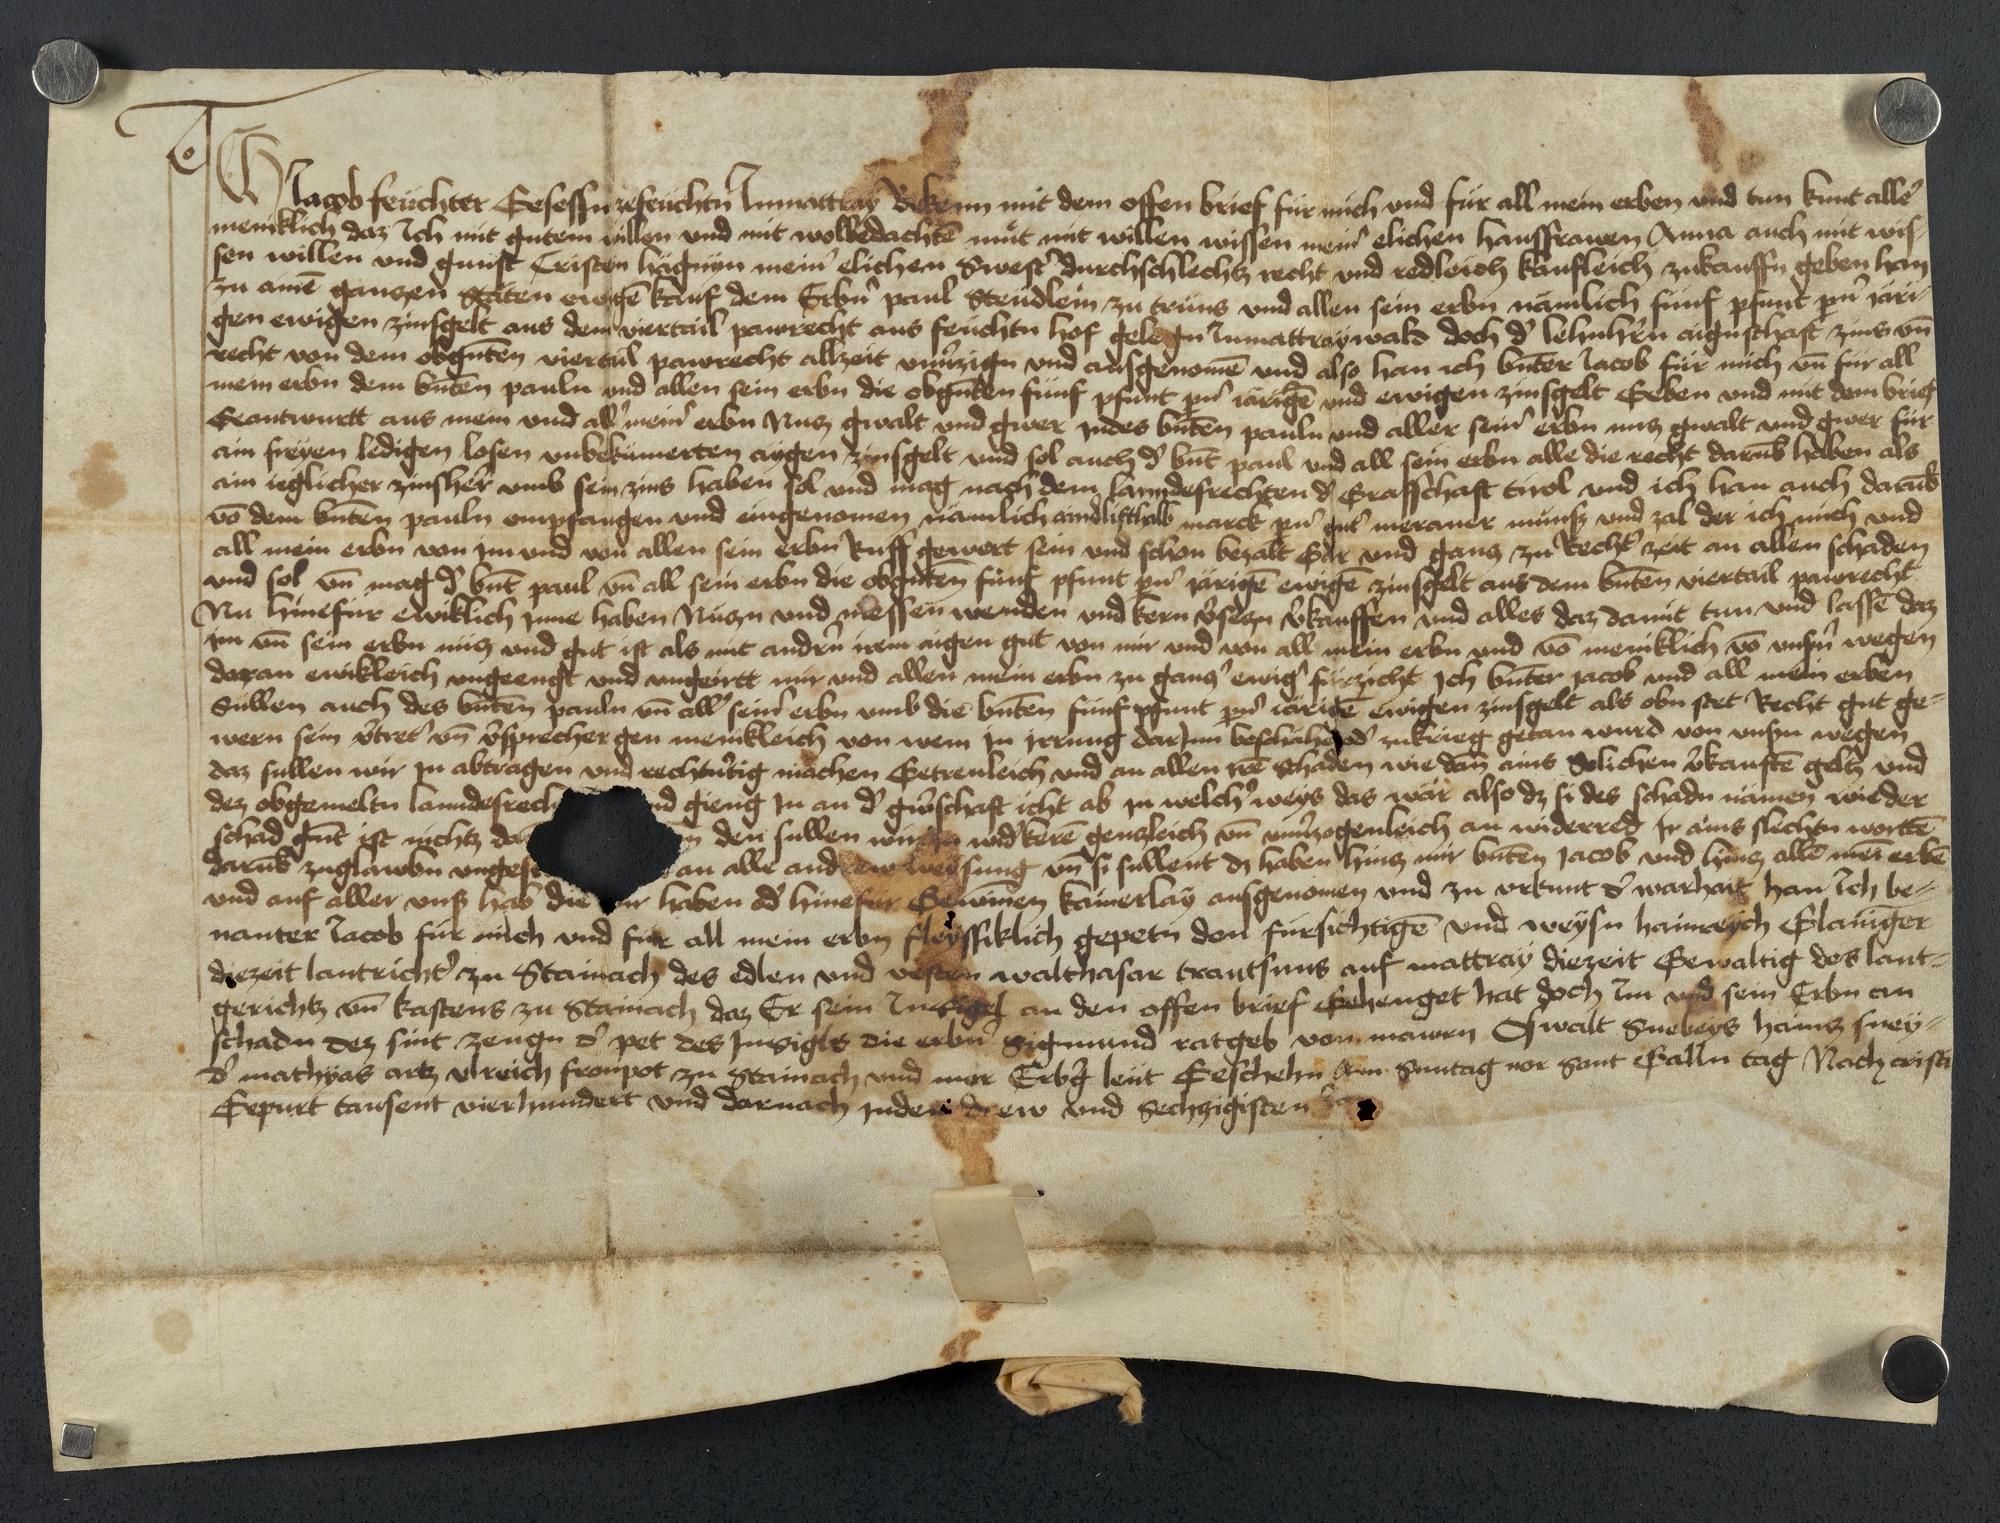 Ich Jacob feuchter Gesessn ze feuchtn Inmattray Bekenn mit dem offen brief für mich und für all mein erben und tun kunt allē
meniklich daz Ich mit gutem willen und mit wolbedachtē muͤt mit willen wissen mein' elichen hausfrawen Anna auch mit wis-
sen willen und gunst Cristen mein' elichen Swest' durchschlechtz recht und redleich kaufleich zukauffn geben han
zu ainē ganzen stäten ewigē kauf dem Erbn' paul Steudlein zu truns und allen sein erbn nämlich fünf pfunt pn' järi-
gen ewigen zinsgelt aus dem viertail pawrecht aus feuchtn hof gelegn Inmattraywald doch d' lehnh'rn aignschaft zins vn̄
recht von dem obgnten viertail pawrecht allzeit vnu'zign und ausgenomē und also han ich bnter Jacob für mich vn̄ für all
mein erbn dem bnten pauln und allen sein erbn die obgnten fünf pfunt pn' järigē und ewigen zinsgelt Geben und mit dem brief
Geantwurtt aus mein und all' mein' erbn Nutz gwalt und gwer in des bnten pauln und aller sein' erbn nutz gwalt und gwer für
ain freyen ledigen losen unbekümerten aygen zinsgelt und sol auch d' bnt paul und all sein erbn alle die recht darūb haben als
ain ieglicher zinsher umb sein zins haben sol und mag nach dem lanndesrechten d' Grafschaft tirol und ich han auch darūb
vō dem bnten pauln empfangen und eingenomen nämlich aindlifthalb marck pn' gut' meraner münss und zal der ich mich und
all mein erbn von im und von allen sein erbn Ruff gewert sein und schon bezalt Gar und gantz zu Recht' zeit an allen schaden
und sol vn̄ mag d' bnt paul vn̄ all sein erbn die obgnten fünf pfunt pn' järigē ewigē zinsgelt aus dem bnten viertail pawrecht
Nu hinefür ewiklich inne haben Nützn und niessen wenden und kern v'setzn v'kauffen und alles daz damit tun und lassē daz
im vn̄ sein erbn nütz und gut ist als mit andrn irem aigen gut von mir und von all mein erbn und vō meniklich vō unsrn wegen
daran ewikleich ungeengt und ungeirtt mir und allen mein erbn zu gantz' ewig' fürzicht Ich bnter Jacob und all mein erben
Süllen auch des bnten pauln vn̄ all' sein' erbn umb die bnten fünf pfunt pn' järigē ewigen zinsgelt als obn stet Recht gut ge-
wern sein v'tret' vn̄ v'sprecher gen menikleich von wem in irrung darinn beschähe od' zukrieg getan wurd von unsrn wegen
daz sullen wir in abtragen und rechtu'tig machen Getreuleich und an allen irē schaden wie dan̄ ains solichen v'kauftē geltz und
dez obgemeltn lanndesrech nd gieng in an d' gw'schaft icht ab in welch' weys das wär also dz si des schadn nämen wie der
schad gnt ist nichtz den sullen wir in wid'kerē gentzleich vn̄ unu'zogenleich an widerred Ir ains slechtn wortē
darūb zuglawbn unges an alle andrew weysung vn̄ si sullent dz haben hintz mir bnten Jacob und hintz allē mein erbē
und auf aller unsr hab die wir haben od' hinefür Gewinnen kainerlay ausgenomen und zu urkunt d' warhait han Ich be-
nanter Jacob für mich und für all mein erbn fleyssiklich gepetn den fürsichtigē und weysn hainreych
diezeit lantricht' zu Stainach des edlen und vesten walthasar trautsuns auf mattray diezeit Gewaltig des lant-
gerichtz vn̄ kastens zu Stainach daz Er sein Insigel an den offen brief Gehenget hat doch Im und sein Erbn an
schadn dez sint zeugn d' pet des Insigls die erbn' Sigmund ratgeb von mawrn Oswalt Snebeys hainz sney-
d' mathyas artz ulreich fronpot zu Stainach und mer Erbg leut Geschehn Am Suntag vor Sant Galln tag Nach cristi
Gepurt tausent vierhundert und darnach inden drew und Sechzigisten